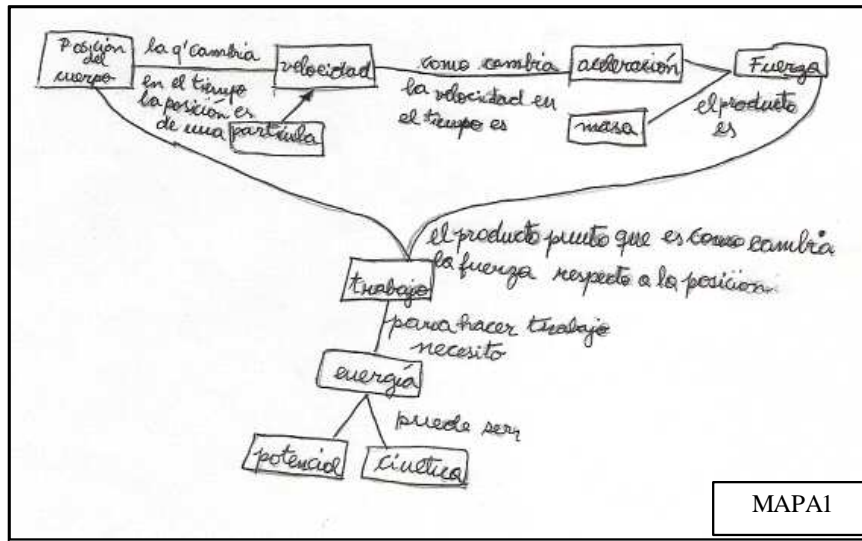 Posición
del
cuerpo
la q' cambia
en el tiempo
la posición es
de una
partícula
velocidad
como cambia
la velocidad en
el tiempo es
aceleración
masa
Fuerza
el producto
es
el producto punto que es como cambia
la fuerza respecto a la posición
trabajo
para hacer trabajo
necesito
energía
puede ser
potencial
cinética
MAPA1